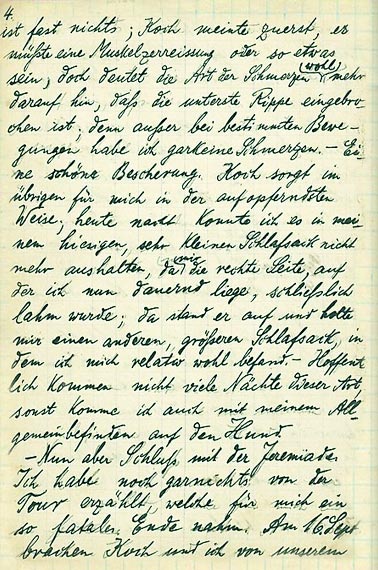 4.
ist fast nichts; Koch meinte zuerst, es
müßte eine Muskelzerreissung oder so etwas
sein; doch deutet die Art der Schmerzen (wohl) mehr
darauf hin, daß die unterste Rippe eingebro-
chen ist; denn außer bei bestimmten Bewe-
gungen habe ich garkeine Schmerzen. – Ei-
ne schöne Bescherung. Koch sorgt im
übrigen für mich in der aufopferndsten
Weise; heute nacht konnte ich es in mei-
nem hiesigen, sehr kleinen Schlafsack nicht
mehr aushalten, da mir die rechte Seite, auf
der ich nun dauernd liege, schließlich
lahm wurde; da stand er auf und holte
mir einen anderen, größeren Schlafsack, in
dem ich mich relativ wohl befand. – Hoffent
lich kommen nicht viele Nächte dieser Art,
sonst komme ich auch mit meinem All-
gemeinbefinden auf den Hund.
– Nun aber Schluß mit der Jeremiade.
Ich habe noch garnichts von der
Tour erzählt, welche für mich ein
so fatales Ende nahm. Am 16. Sept
brachen Koch und ich von unserem